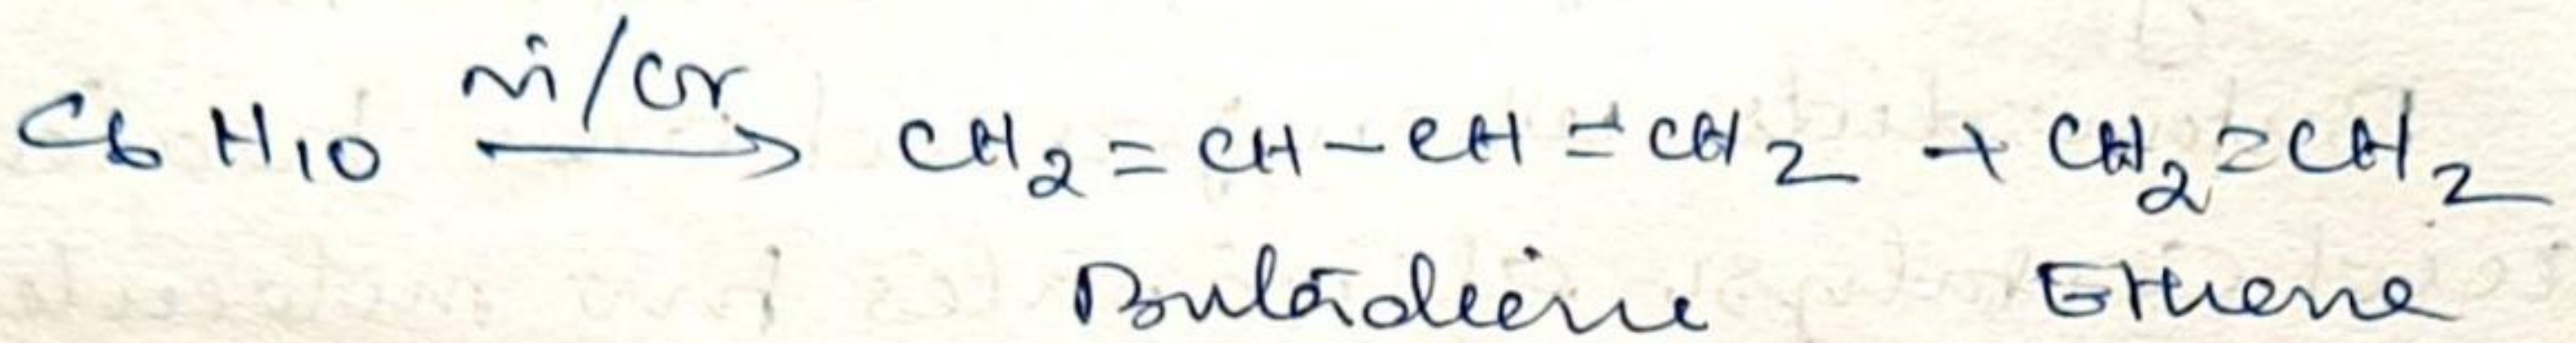 C6H10 ni/Cr → CH2=CH-CH=CH2 + CH2=CH2
Butadiene Ethene